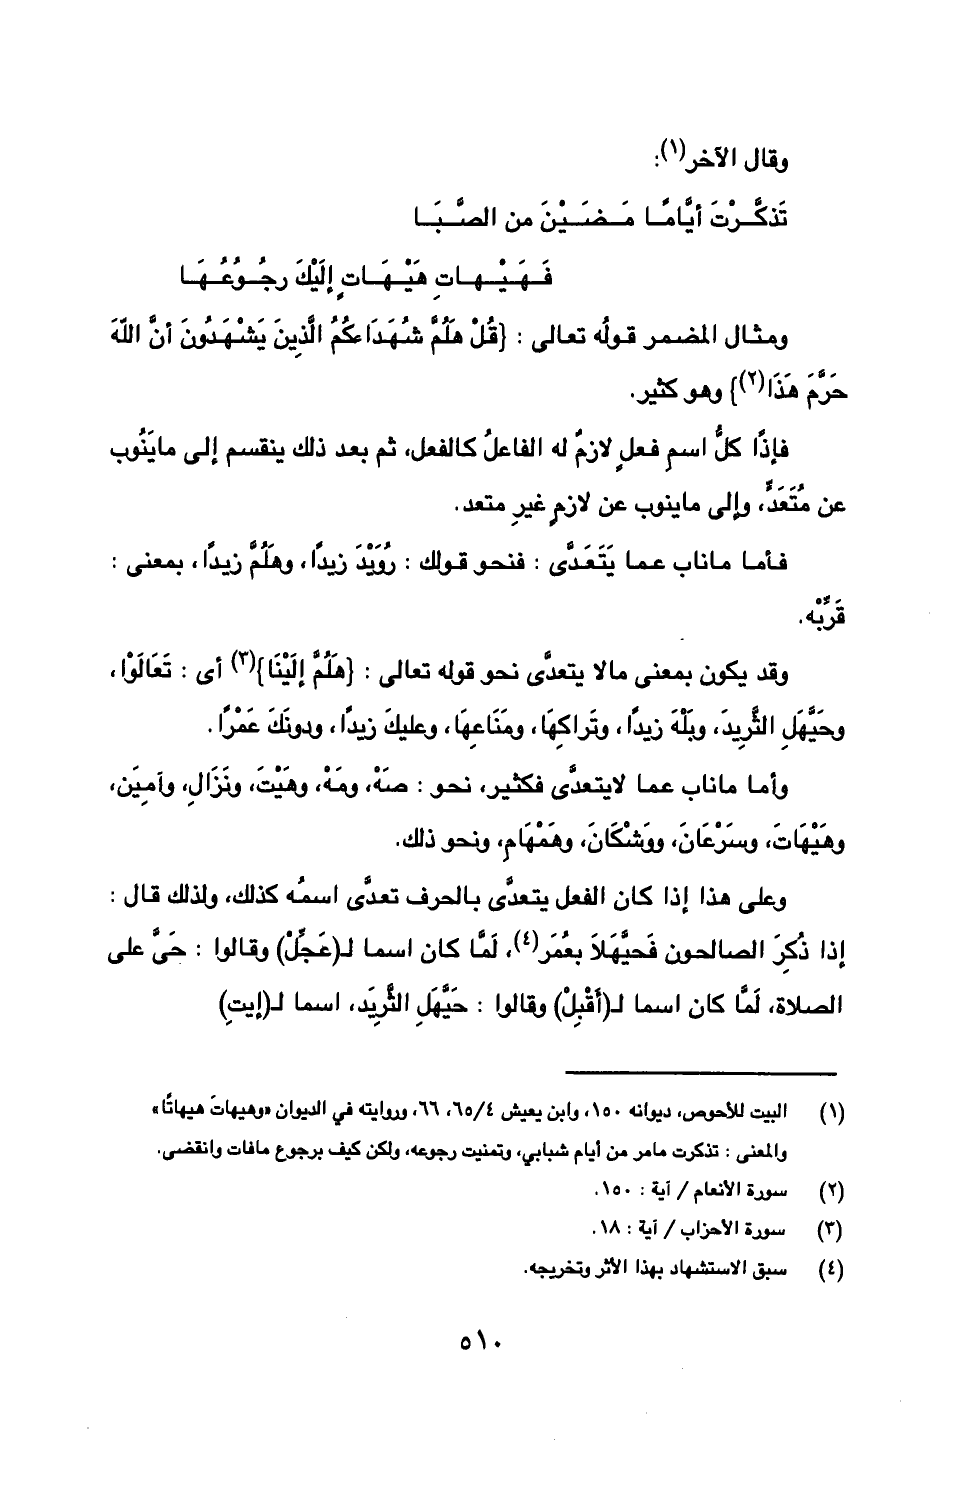 وقال الآخر(١):
تَذكَّـرْتَ أيَّامًـا مَـضَـيْـنَ من الصَّـبَـا
فَـهَـيْـهـاتِ هَيْـهَـاتٍ إلَيْكَ رجُـوُعُـهَـا
ومثال المضمر قولُه تعالى : {قُلْ هَلُمَّ شُهَدَاءكُمُ الَّذِينَ يَشْهَدُونَ أنَّ اللّهَ
حَرَّمَ هَذَا(٢)} وهو كثير.
فإذًا كلُّ اسمِ فعلٍ لازمٌ له الفاعلُ كالفعل، ثم بعد ذلك ينقسم إلى ماينُوب
عن مُتَعَدٍّ، وإلى ماينوب عن لازمٍ غيرِ متعد.
فأما ماناب عما يَتَعَدَّى : فنحو قولك : رُوَيْدَ زيدًا، وهَلُمَّ زيدًا، بمعنى :
قَرِّبْه.
وقد يكون بمعنى مالا يتعدَّى نحو قوله تعالى : {هَلُمَّ إلَيْنَا}(٣) أى : تَعَالَوْا،
وحَيَّهَلِ الثَّرِيدَ، وبَلْهَ زيدًا، وتَراكِهَا، ومَنَاعِهَا، وعليكَ زيدًا، ودونَكَ عَمْرًا.
وأما ماناب عما لايتعدَّى فكثير، نحو : صَهْ، ومَهْ، وهَيْتَ، ونَزَالِ، وآمِيَن،
وهَيْهَاتَ، وسَرْعَانَ، ووَشْكَانَ، وهَمْهَامِ، ونحو ذلك.
وعلى هذا إذا كان الفعل يتعدَّى بالحرف تعدَّى اسمُه كذلك، ولذلك قال :
إذا ذُكِرَ الصالحون فَحيَّهَلاَ بعُمَر(٤)، لَمَّا كان اسما لـ(عَجِّلْ) وقالوا : حَىَّ على
الصلاة، لَمَّا كان اسما لـ(أقْبِلْ) وقالوا : حَيَّهَلِ الثَّرِيَد، اسما لـ(إيتِ)
(١) البيت للأحوص، ديوانه ١٥٠، وابن يعيش ٦٥/٤، ٦٦، وروايته في الديوان «وهيهاتَ هيهاتًا»
والمعنى : تذكرت مامر من أيام شبابي، وتمنيت رجوعه، ولكن كيف برجوع مافات وانقضى.
(٢) سورة الأنعام / آية : ١٥٠.
(٣) سورة الأحزاب / آية : ١٨.
(٤) سبق الاستشهاد بهذا الأثر وتخريجه.
٥١٠